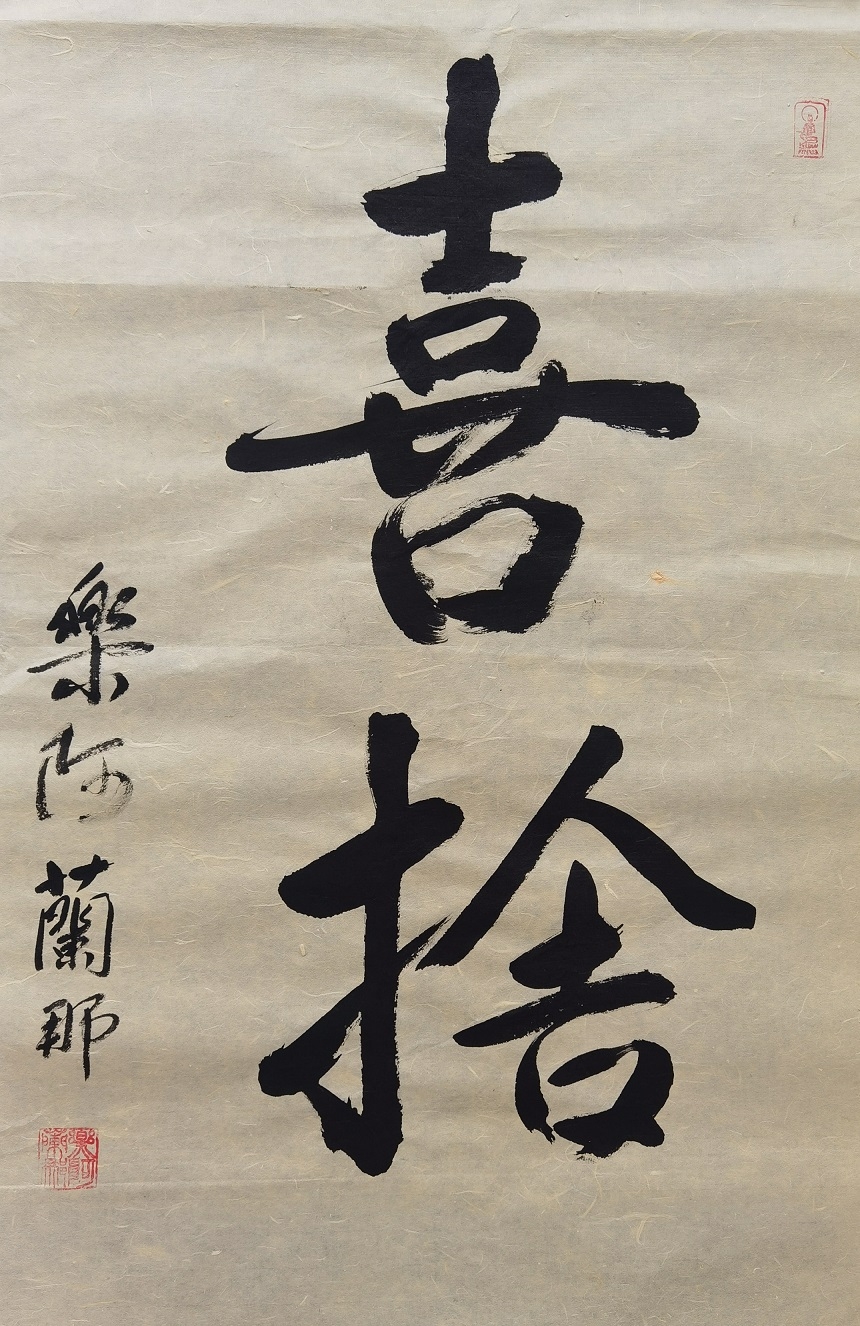 喜捨
樂阿蘭那